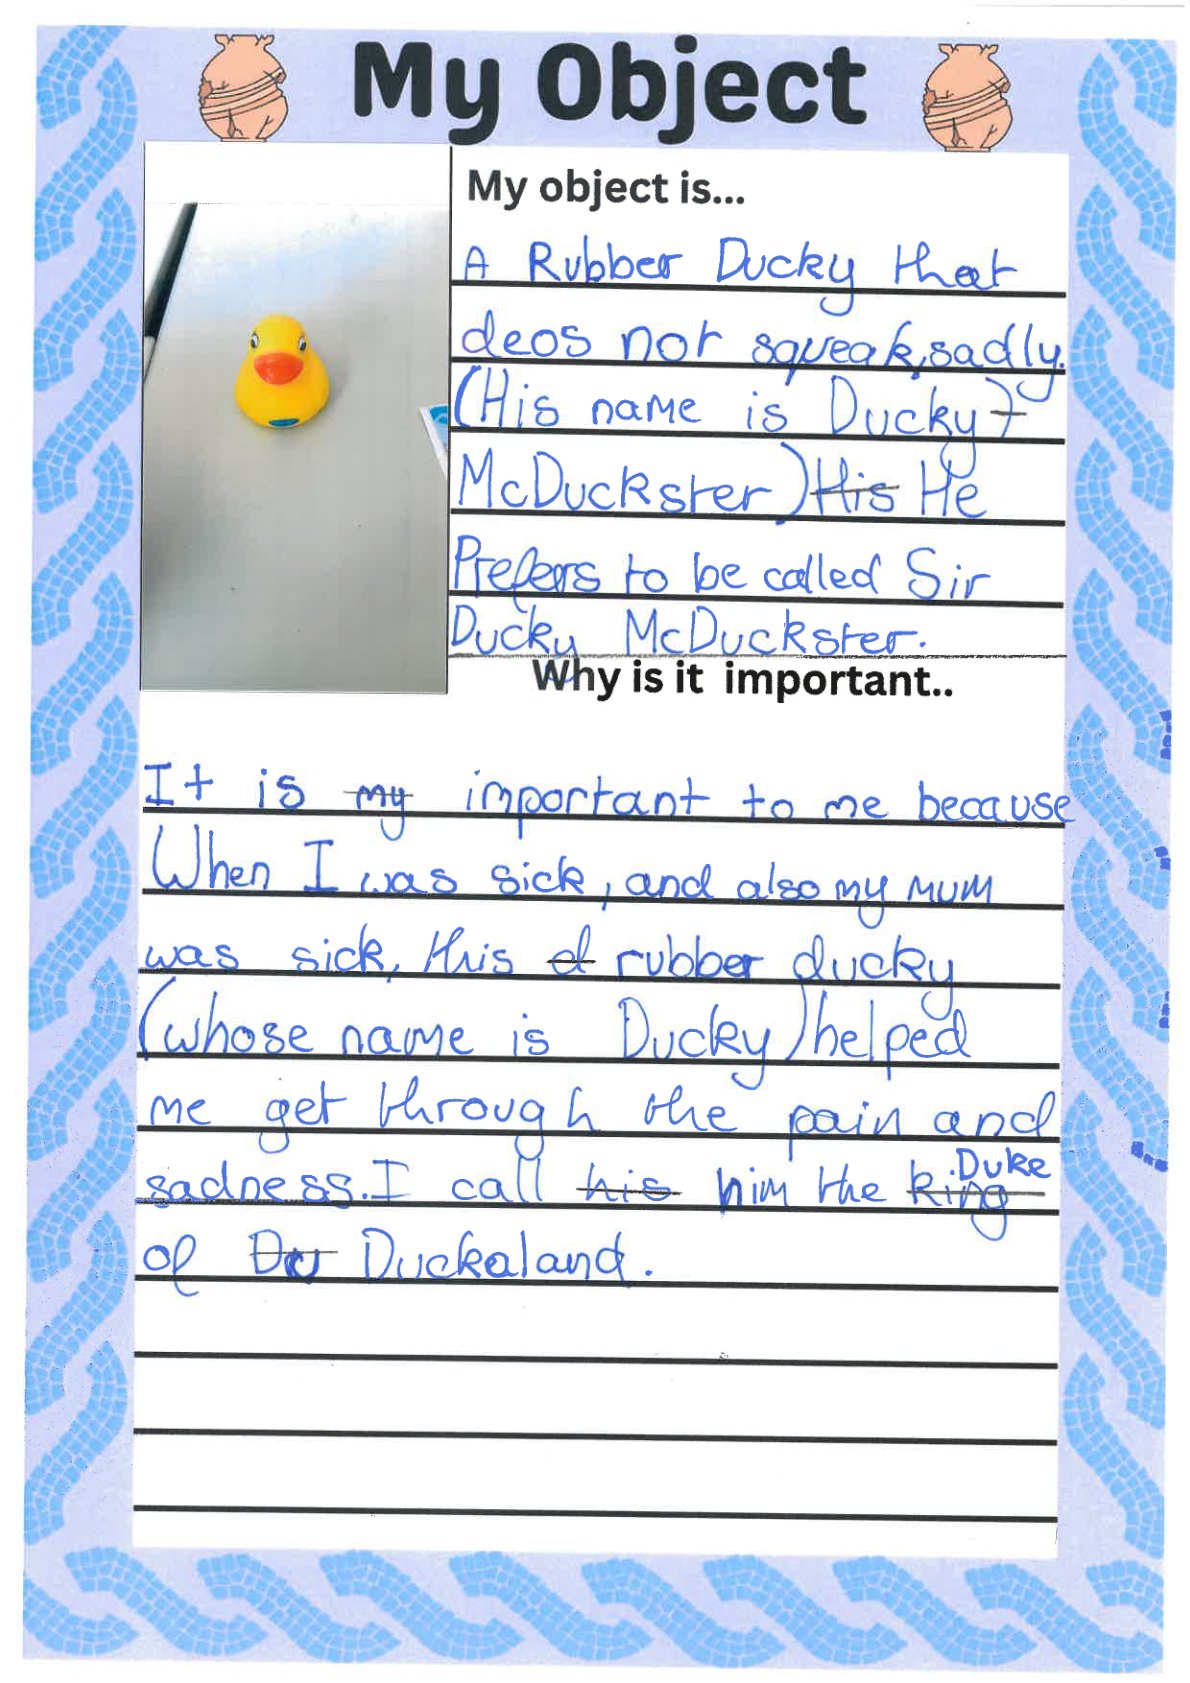 My Object
My object is...
A Rubber Ducky that
deos not squeak, sadly.
(His name is Ducky)
McDuckster) His He
Prefers to be called Sir
Ducky McDuckster.
Why is it important..
It is my important to me because
When I was sick, and also my mum
was sick, this d rubber ducky
(whose name is Ducky) helped
me get through the pain and
sadness. I call his him the king Duke
of Du Duckaland.